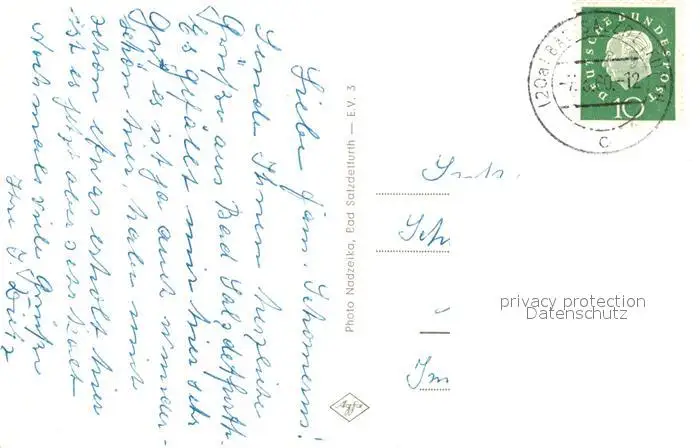 Liebe Fam. Schomerns!
Sende Ihnen herzliche
Grüße aus Bad Salzdetfurth.
Es gefällt mir hier sehr
gut, es ist ja auch wunder-
schön hier, habe mich
schon etwas erholt hier
ist es jetzt aber sehr kalt
Nochmals viele Grüße
Ihre I. Dietz
Photo Nadzeika, Bad Salzdetfurth — E.V. 3
Agfa
DEUTSCHE BUNDESPOST
10
(20a) BAD SALZDETFURTH
-12
c
Sch
Im
privacy protection
Datenschutz